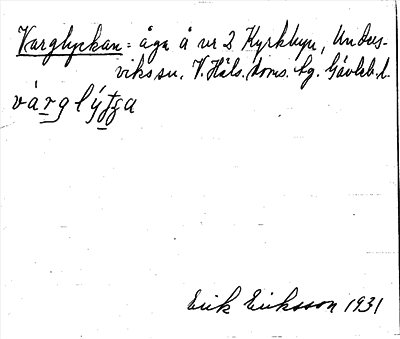 Varglyckan = äga å nr 2 Kyrkbyn, Unders-
vik sn. V. Häls. doms. hg. Gävleb. l.
várglýtja
Erik Eriksson 1931